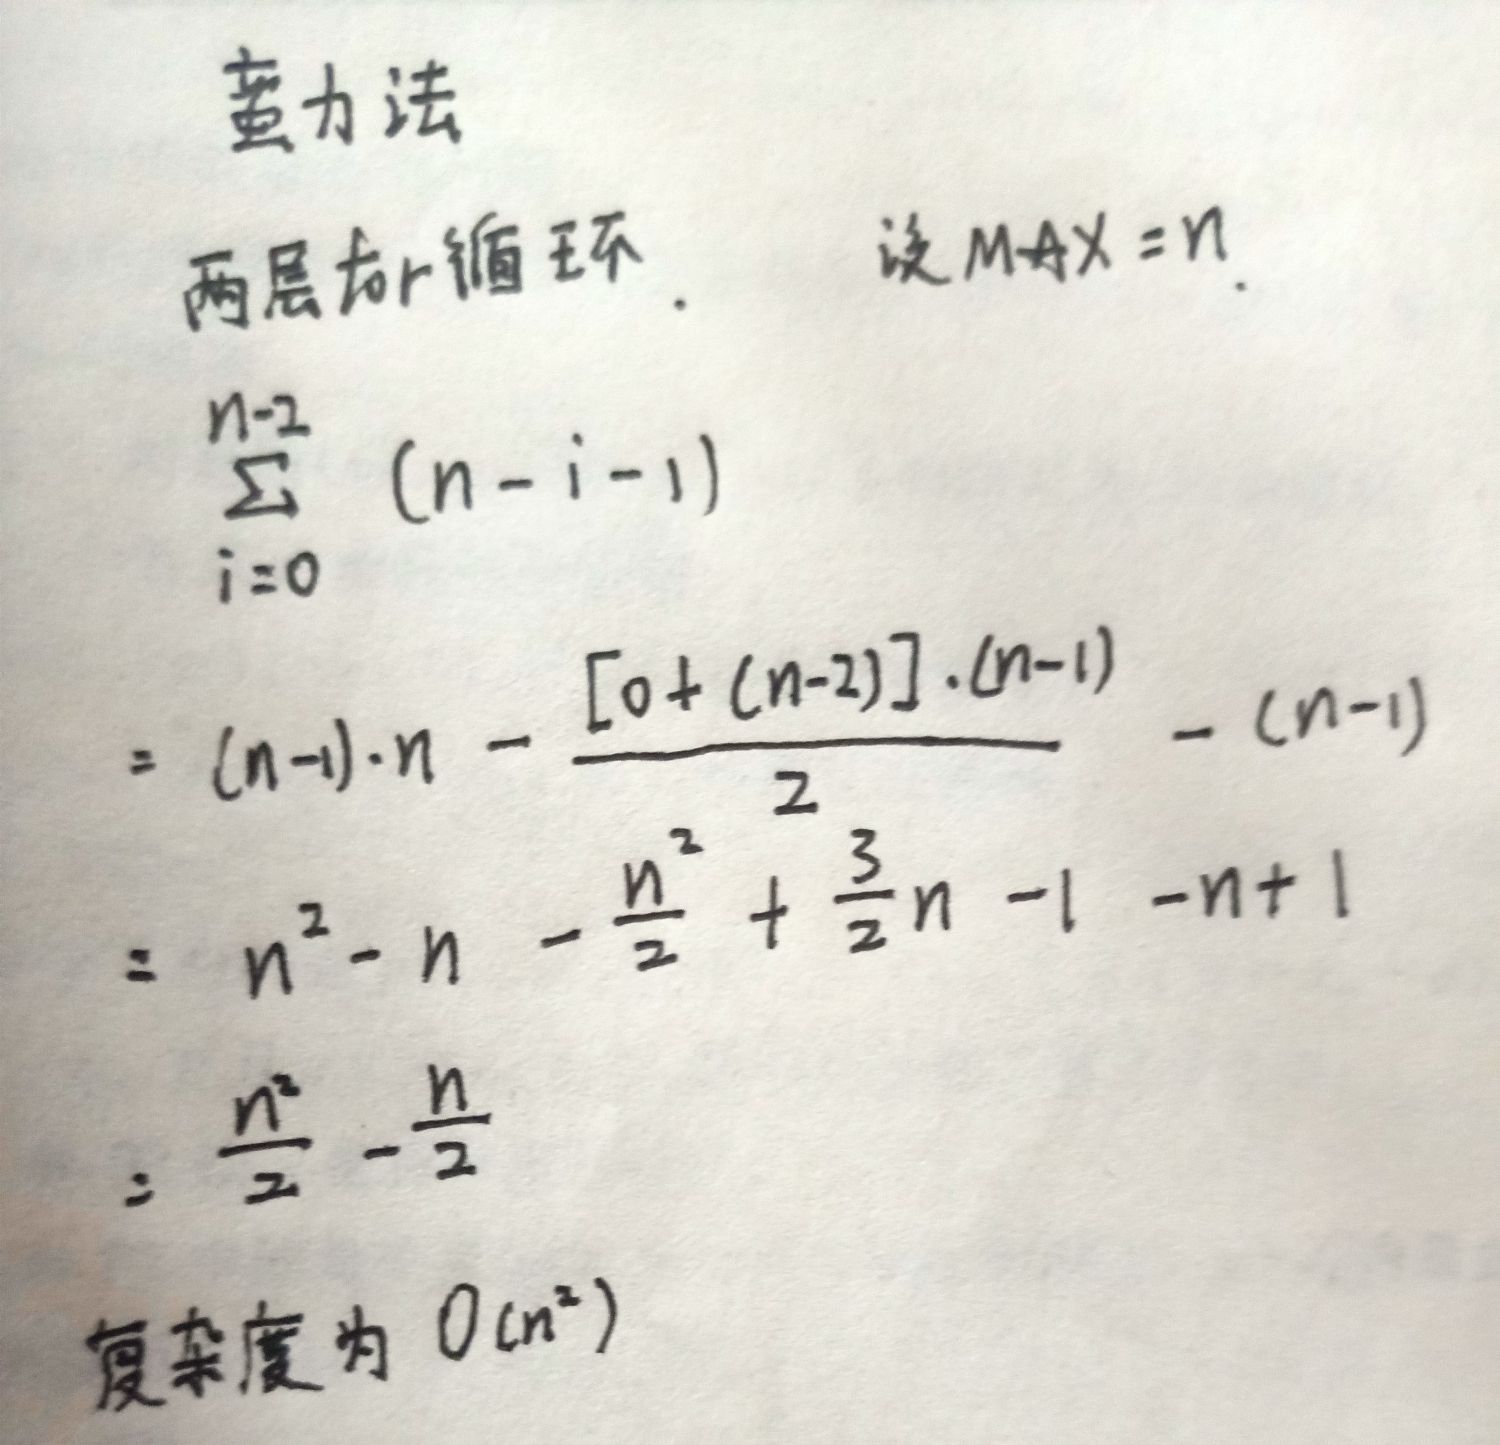 蛮力法
两层for循环. 设MAX=n.
n-2
Σ (n-i-1)
i=0
= (n-1)·n - [0+(n-2)]·(n-1)/2 - (n-1)
= n² - n - n²/2 + 3/2 n - 1 - n + 1
= n²/2 - n/2
复杂度为 O(n²)